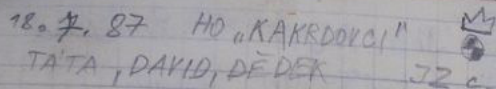 18. 7. 87 HO „KAKRDOVCI"
TÁTA, DAVID, DĚDEK JZ c